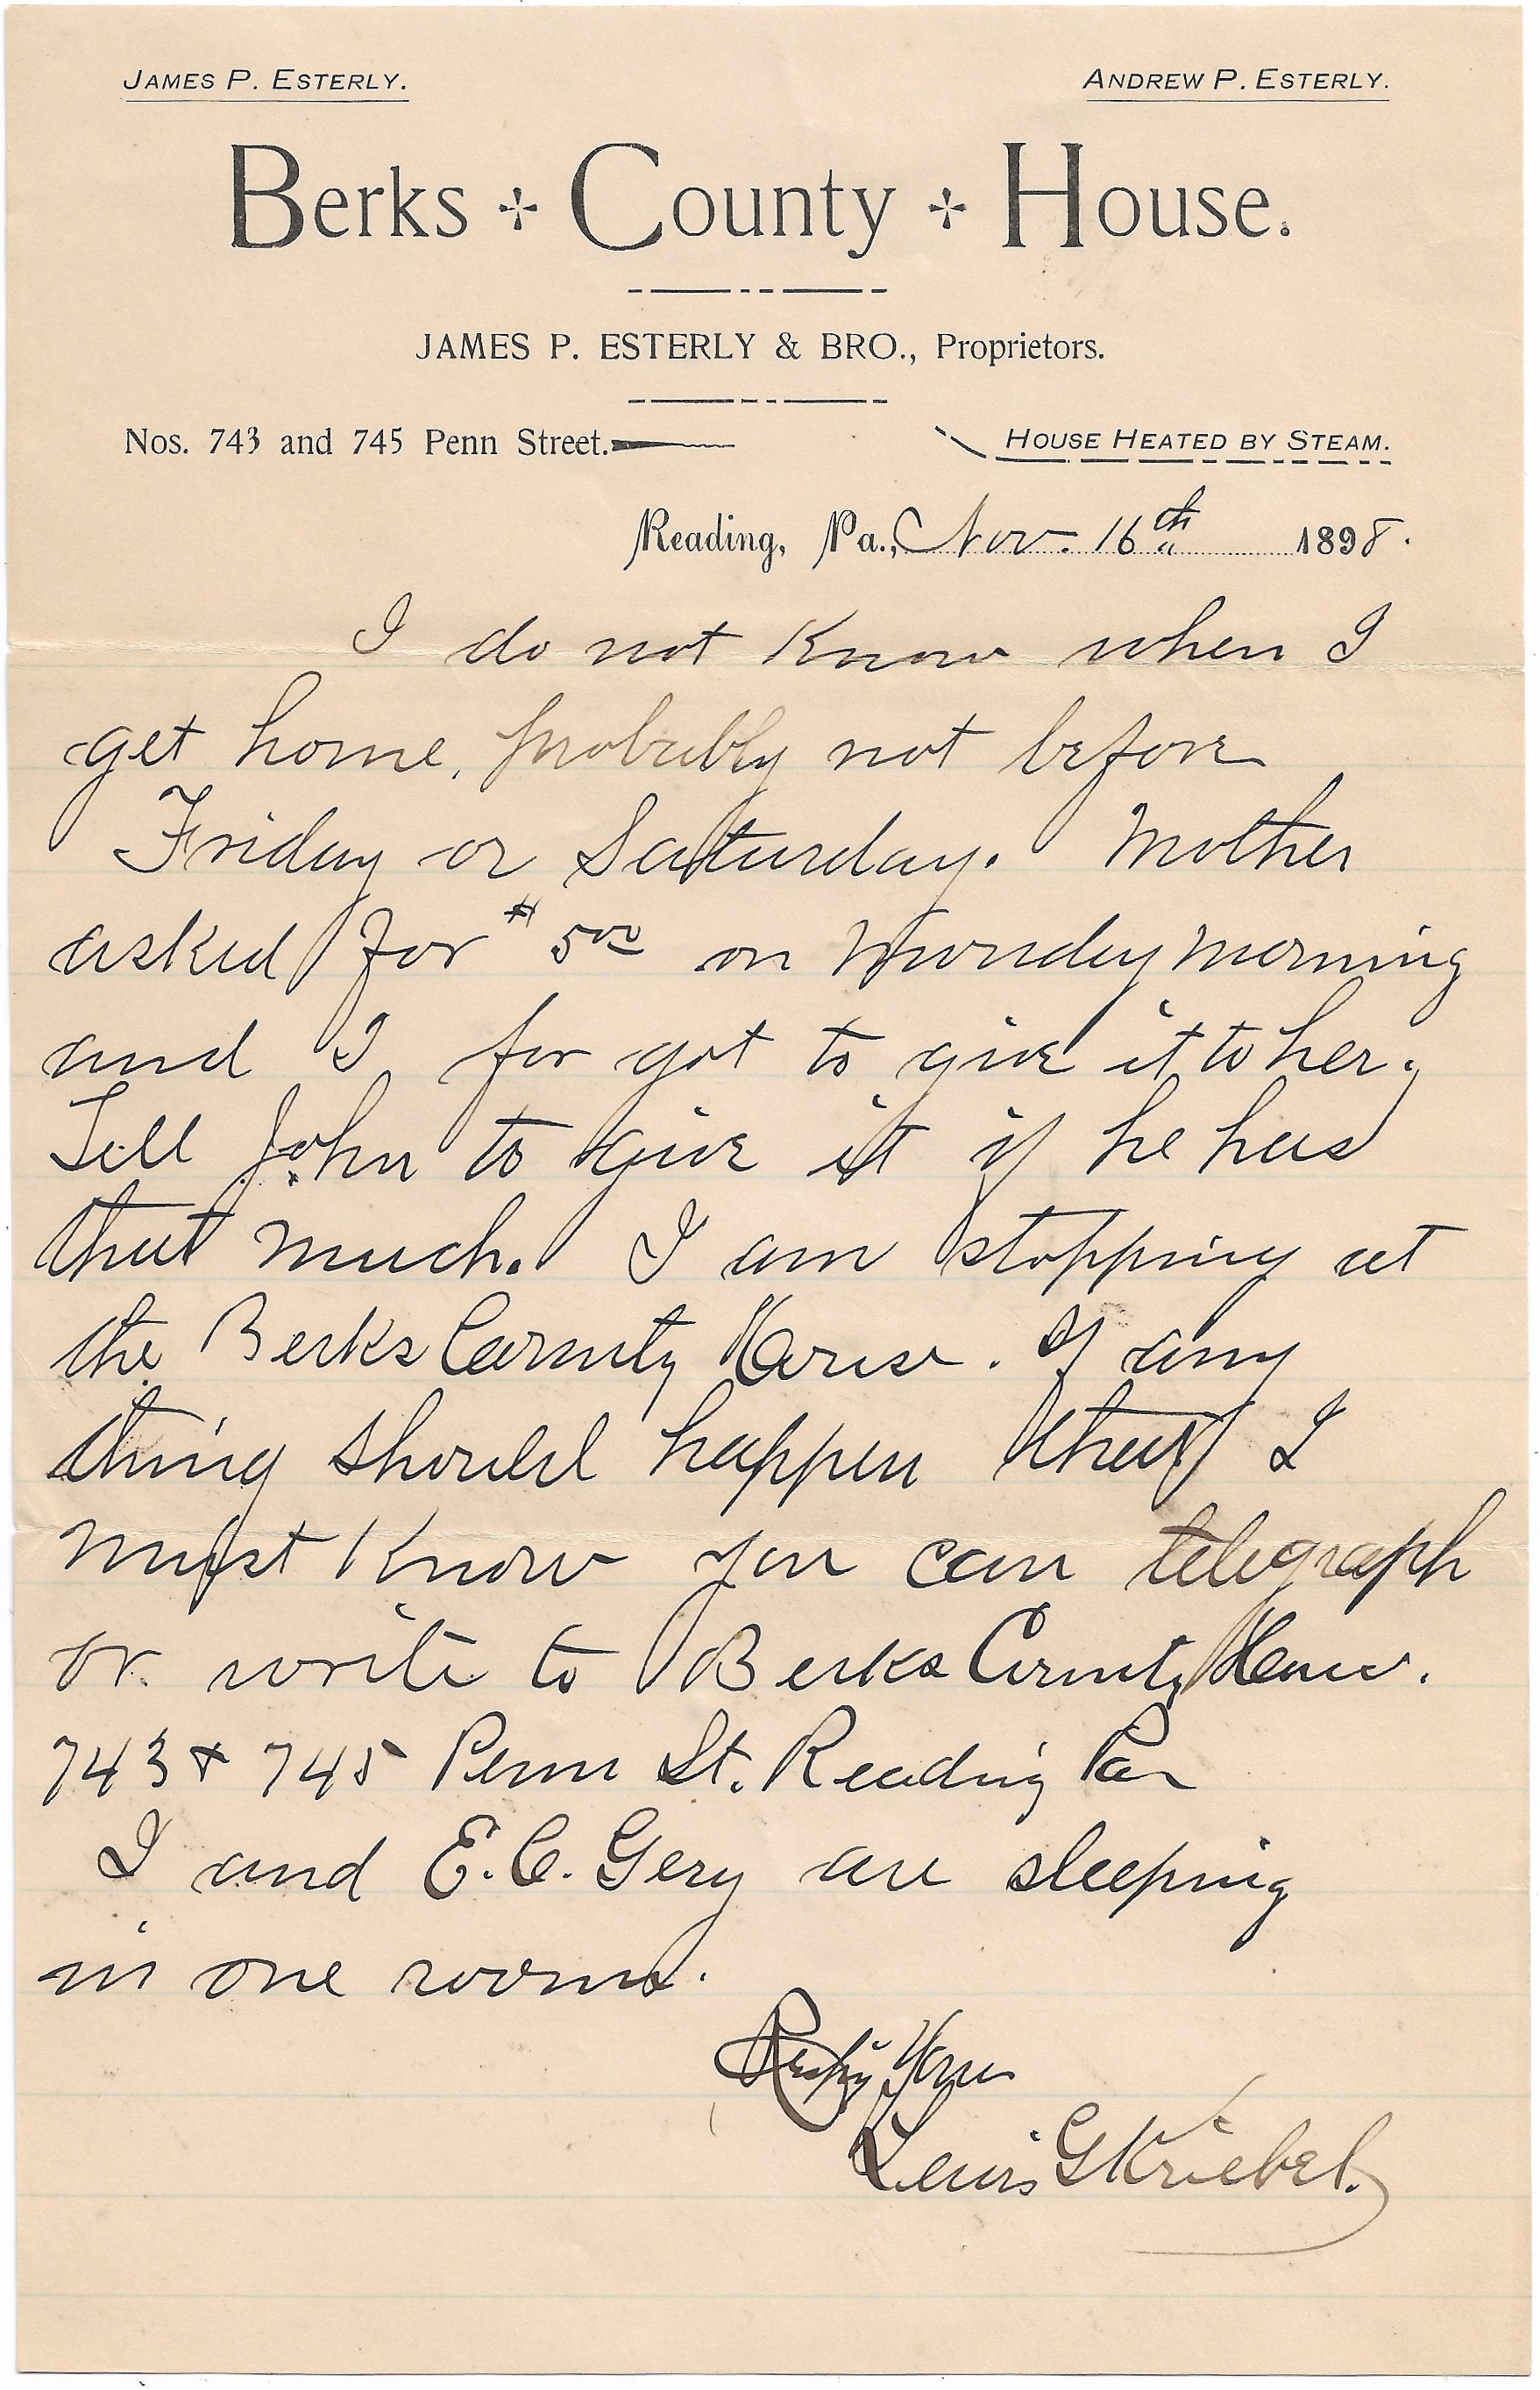 JAMES P. ESTERLY. ANDREW P. ESTERLY.
Berks County House.
JAMES P. ESTERLY & BRO., Proprietors.
Nos. 743 and 745 Penn Street. HOUSE HEATED BY STEAM.
Reading, Pa., Nov. 16th 1898.
I do not Know when I
get home, probably not before
Friday or Saturday. Mother
asked for $500 on Monday morning
and I for got to give it to her.
Tell John to give it if he has
that much. I am stopping at
the Berks County House. If any
thing should happen that I
must Know you can telegraph
or write to Berks County House.
743 & 745 Penn St. Reading Pa
I and E. C. Gery are sleeping
in one room.
Respy Yours
Lewis G Kriebel.